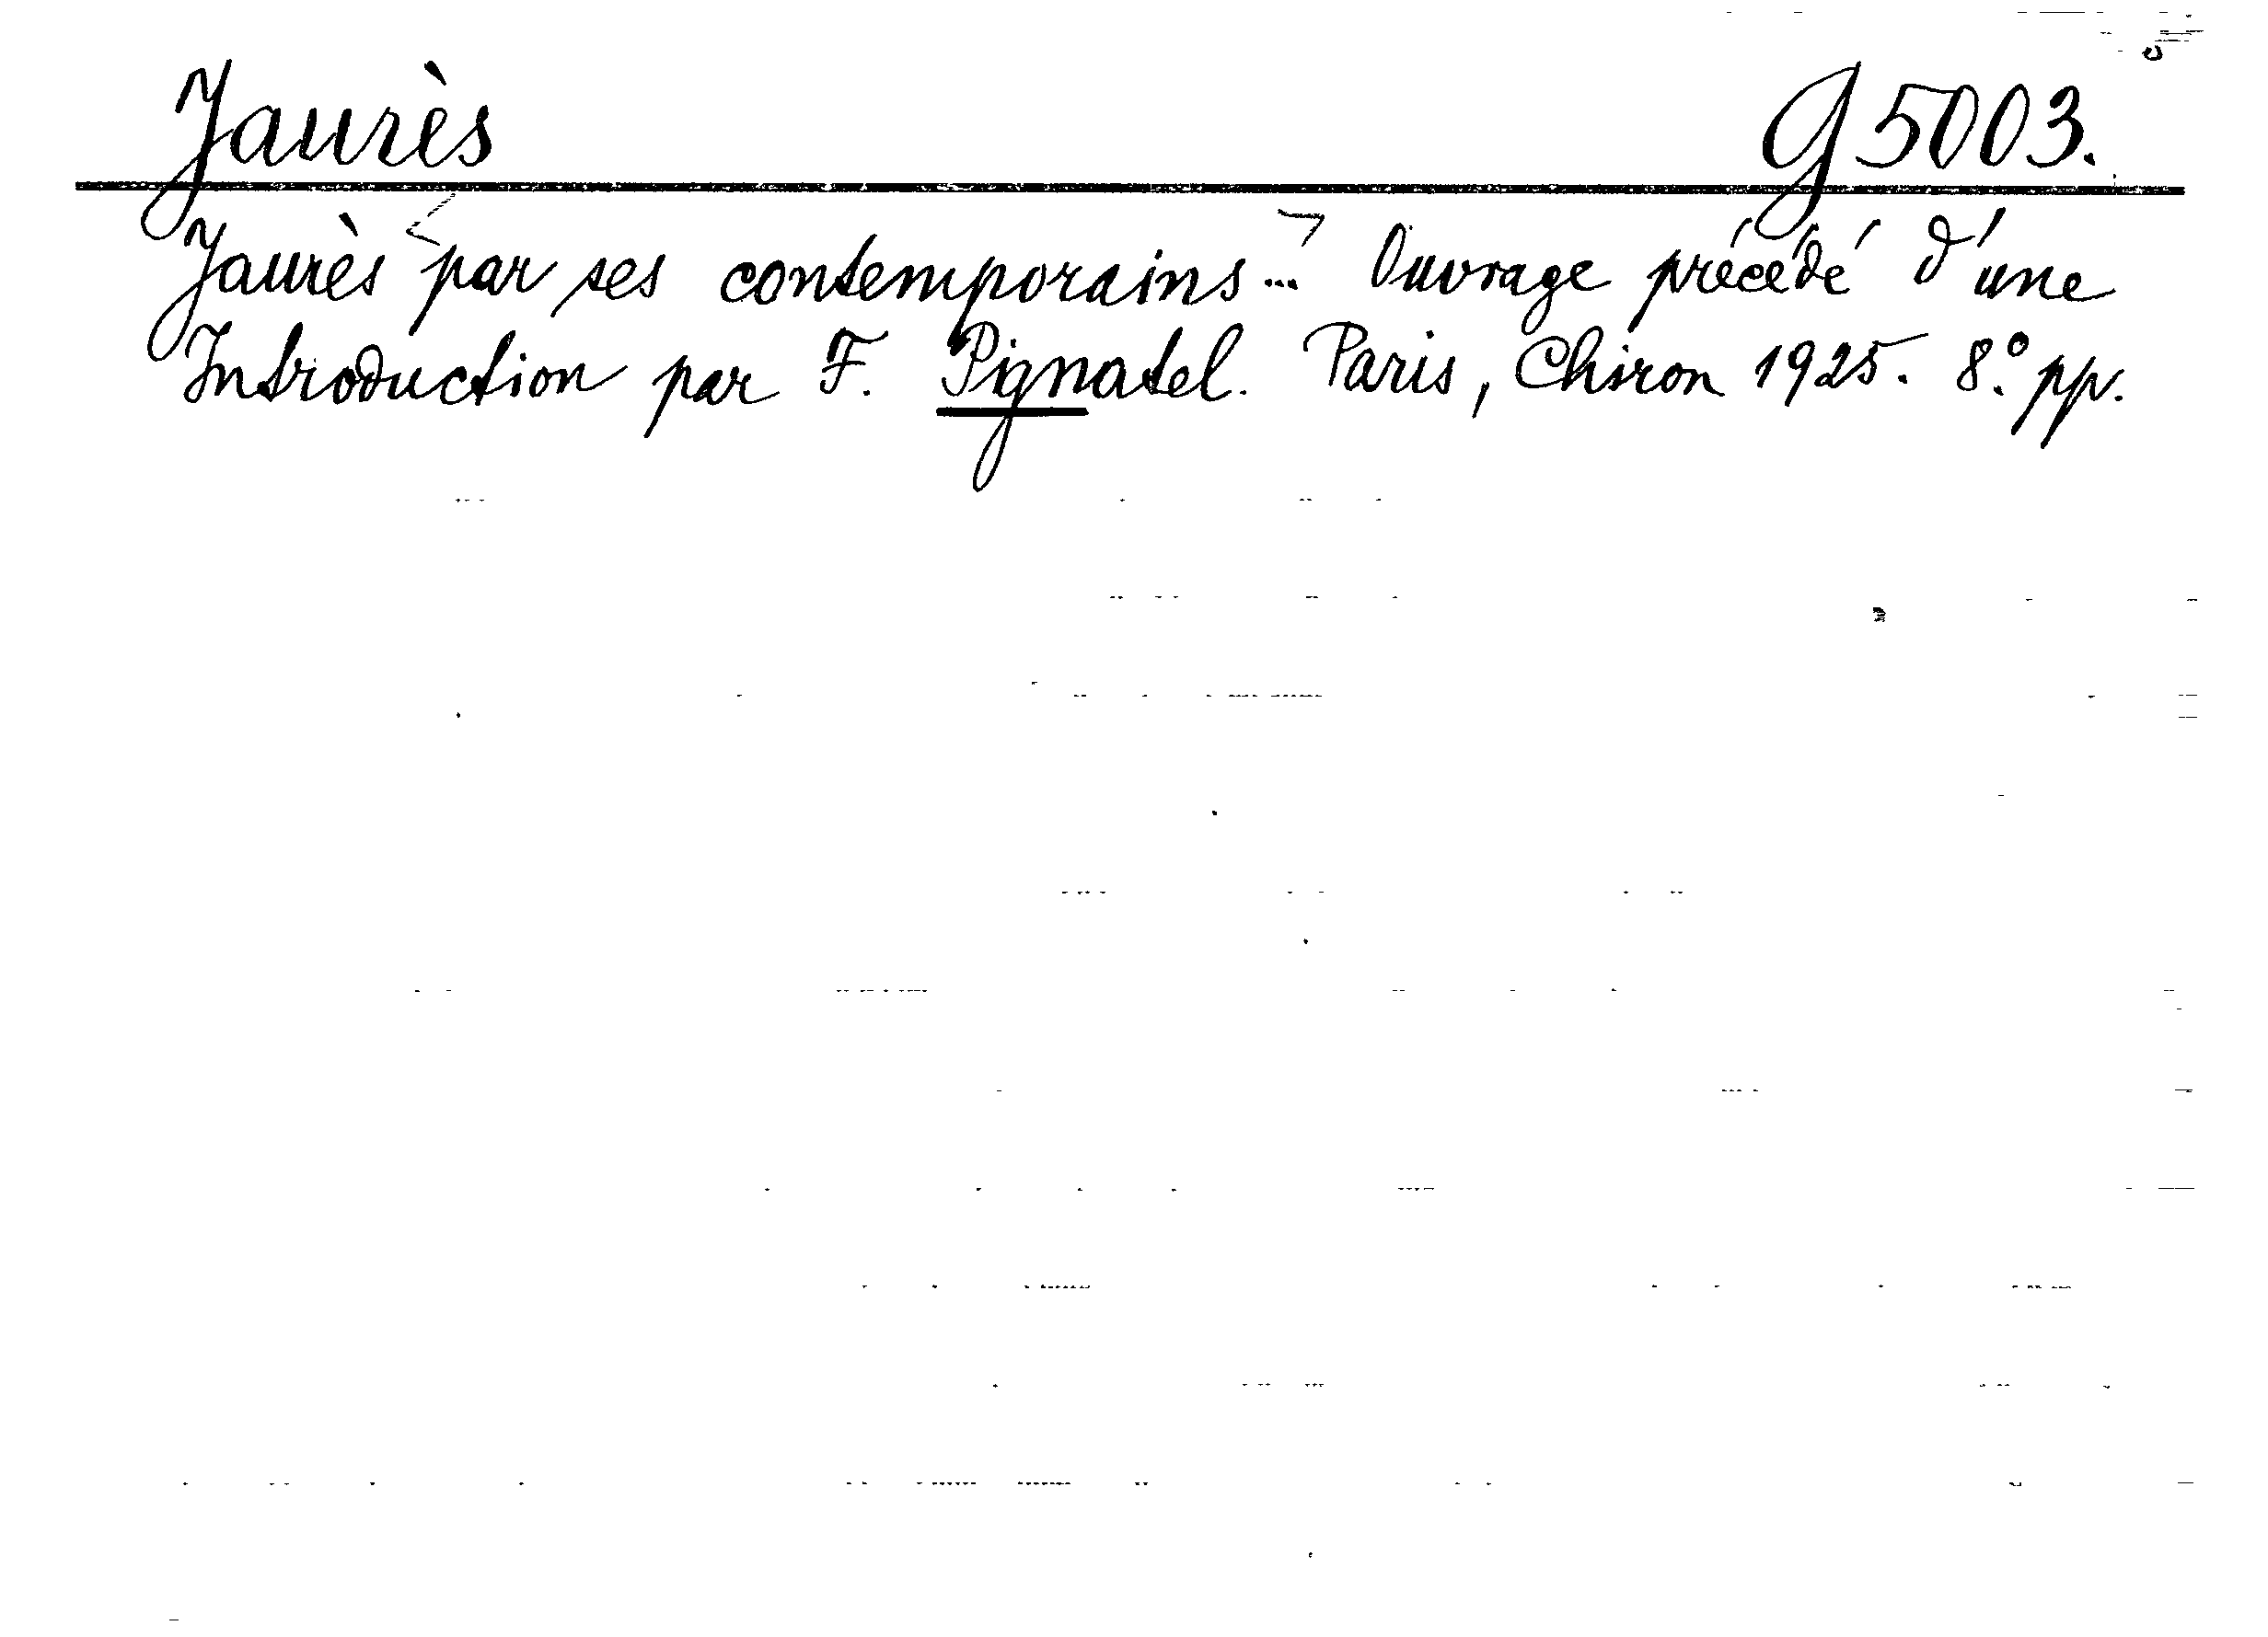 Jaurès G 5003.
Jaurès <par ses contemporains...> Ouvrage précédé d'une
Introduction par F. Pignatel. Paris, Chiron 1925. 8.° pp.